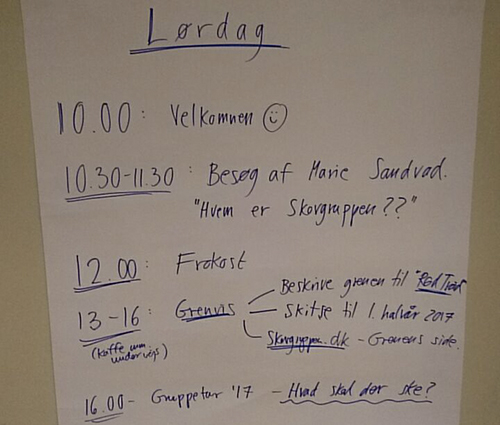 Lørdag
10.00: Velkommen ☺
10.30-11.30: Besøg af Marie Sandvad.
"Hvem er Skovgruppen??"
12.00: Frokost
13-16: Grenvis
(kaffe undervejs)
Beskrive grenen til "Rød Tråd"
Skitse til 1. halvår 2017
.dk - Grenens side.
16.00 - Gruppetur '17 - Hvad skal der ske?